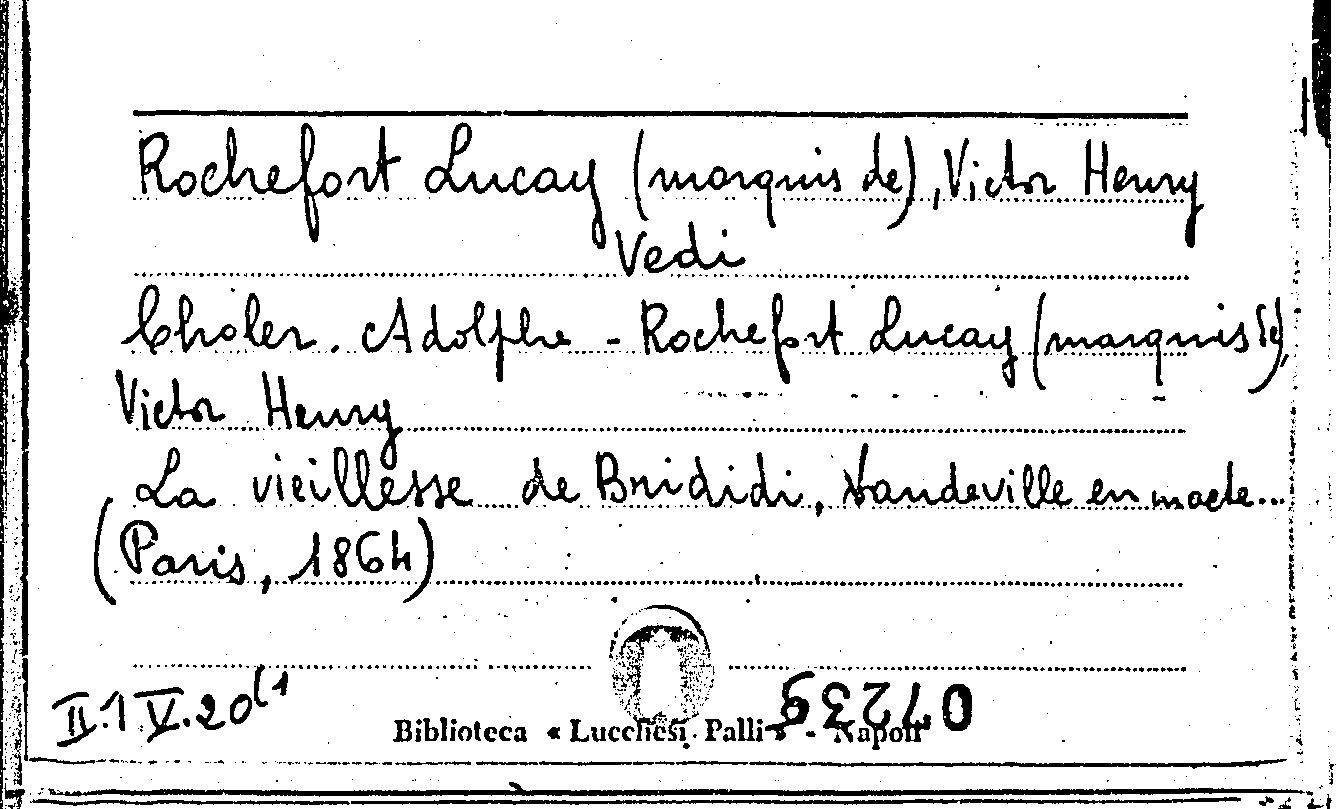 Rochefort Lucay (marquis de), Victor Henry
Vedi
Choler. Adolphe - Rochefort Lucay (marquis de),
Victor Henry
La vieillesse de Brididi, Vaudeville en un acte...
(Paris, 1864)
II.1 V.20(1
Biblioteca « Lucchesi Palli » - Napoli